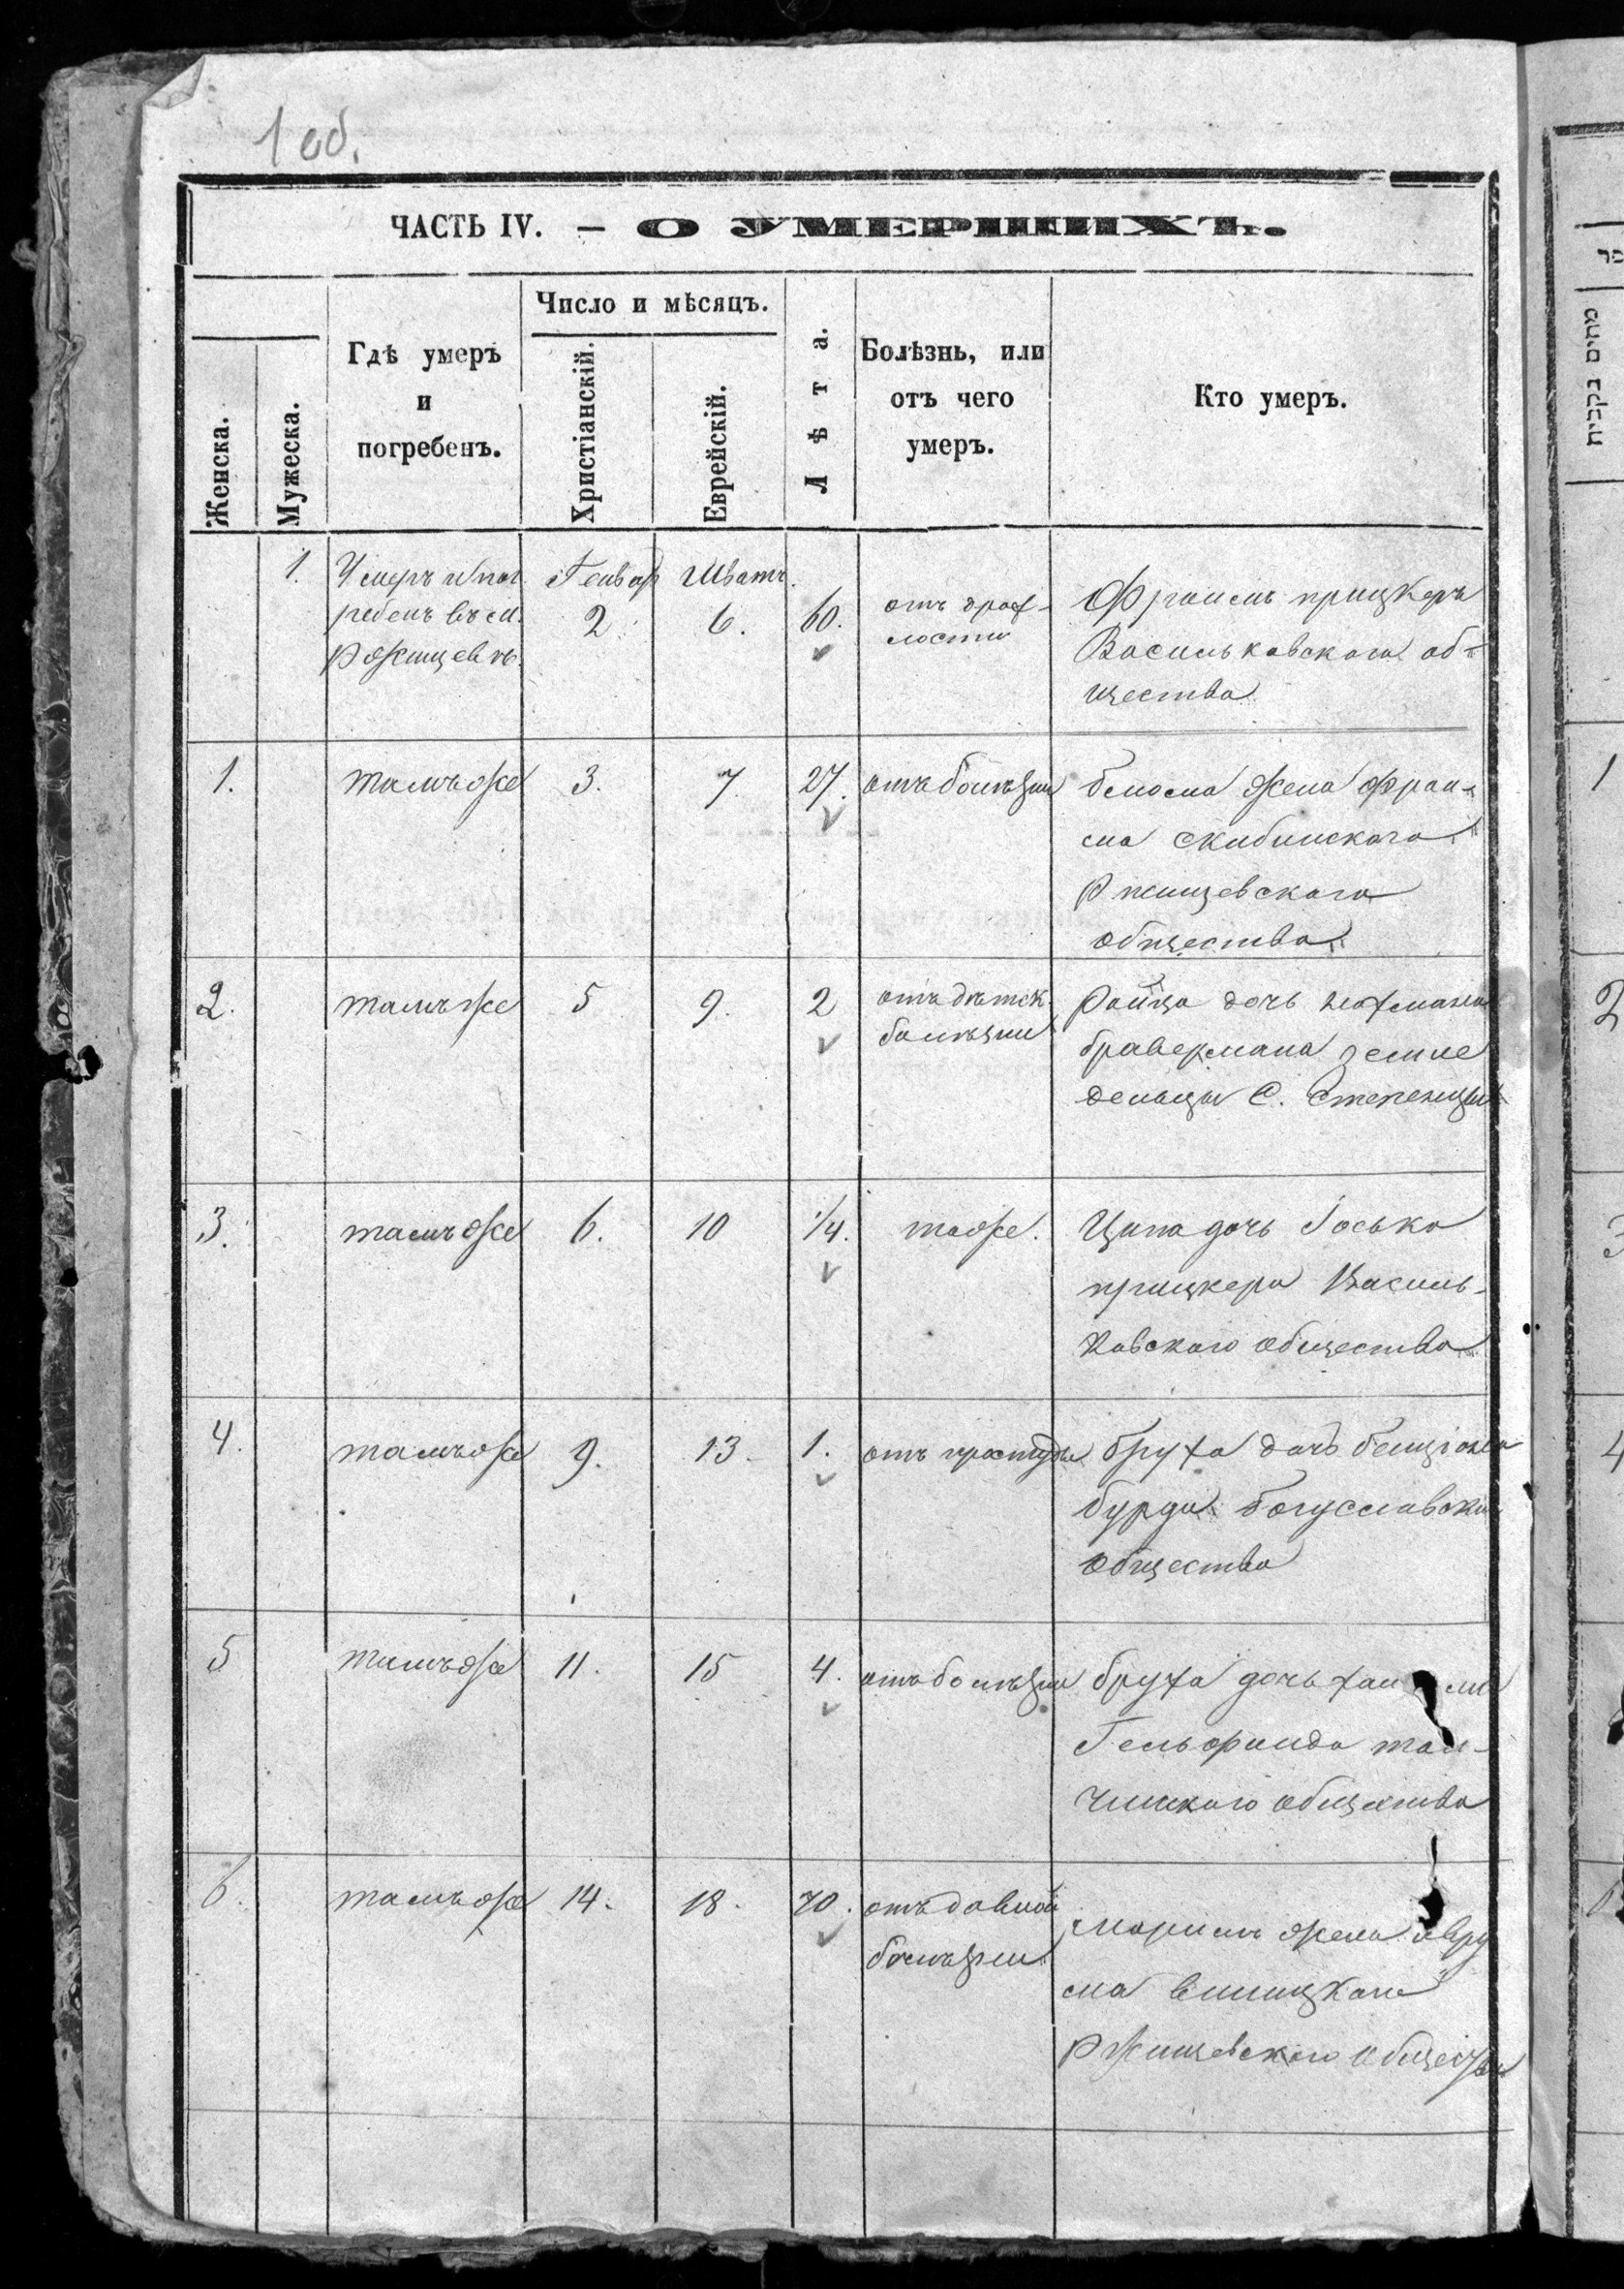 1 об.
ЧАСТЬ IV. — О УМЕРШИХЪ.
Женска.
Мужеска.
Гдѣ умеръ
и
погребенъ.
Число и мѣсяцъ.
Христіанскій.
Еврейскій.
Лѣта.
Болѣзнь, или
отъ чего
умеръ.
Кто умеръ.
1.
Умеръ и пог
ребенъ въ м.
Ржищевѣ.
Генвар
2
Шватъ.
6.
60.
отъ драх-
лости
Фроимъ прицкеръ
Васильковскаго об-
щества
1.
тамъ же
3.
7
27.
отъ болѣзни
жена Фрои-
ма скибинскаго
Ржищевскаго
общества
2.
тамъ же
5
9.
2
отъ дѣтск.
болѣзни
Ройза дочь нохмана
бравермана земле
дельца С. Степенцы
3.
тамъ же
6.
10
1/4.
тоже.
Ципа дочь Іоська
прицкера Василь-
ковскаго общества
4.
тамъ же
9.
13
1.
отъ простуды
бруха дочь бенціона
бурда Богуславскаго
общества
5
тамъ же
11.
15
4.
отъ болѣзни
бруха дочь
Гельфанда тал-
чинскаго общества
6.
тамъ же
14.
18.
70.
отъ давной
болѣзни
Маримъ жена авру
ма виницкаго
Ржищевскаго общества
1
2
3
4